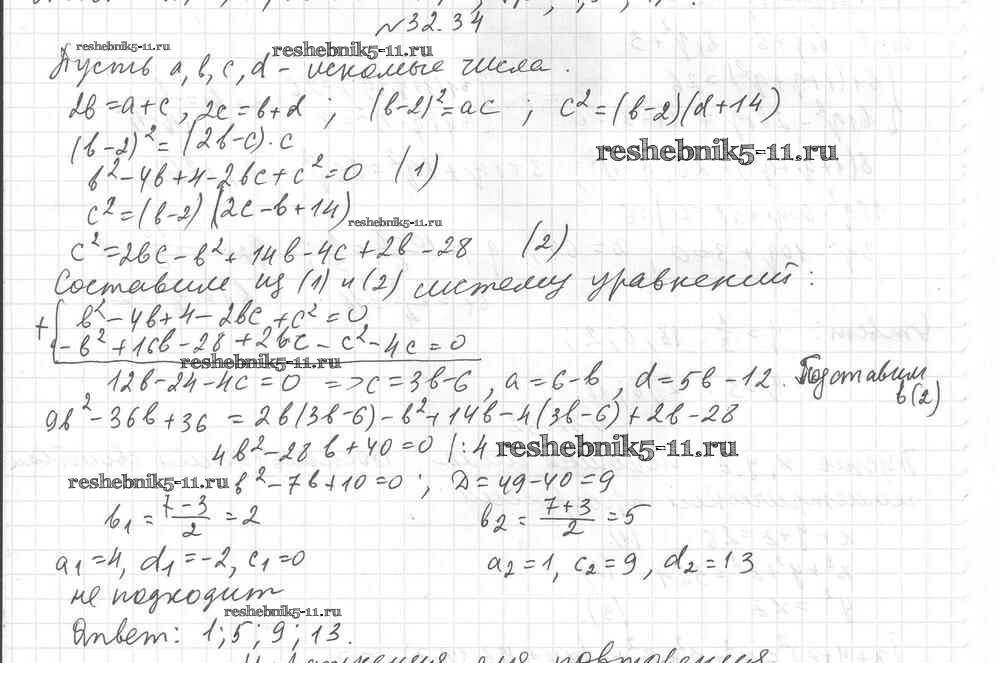 №32.34
reshebnik5-11.ru reshebnik5-11.ru
Пусть a, b, c, d - искомые числа.
2b=a+c, 2c=b+d ; (b-2)²=ac ; c²=(b-2)(d+14)
(b-2)²=(2b-c)·c reshebnik5-11.ru
b²-4b+4-2bc+c²=0 (1)
c²=(b-2)(2c-b+14) reshebnik5-11.ru
c²=2bc-b²+14b-4c+2b-28 (2)
Составим из (1) и (2) систему уравнений:
+ { b²-4b+4-2bc+c²=0
-b²+16b-28+2bc-c²-4c=0
reshebnik5-11.ru
12b-24-4c=0 => c=3b-6, a=6-b, d=5b-12 Подставим
в(2)
9b²-36b+36 = 2b(3b-6)-b²+14b-4(3b-6)+2b-28
4b²-28b+40=0 |:4 reshebnik5-11.ru
reshebnik5-11.ru b²-7b+10=0 ; D=49-40=9
b₁ = (7-3)/2 = 2 b₂ = (7+3)/2 = 5
a₁=4, d₁=-2, c₁=0 a₂=1, c₂=9, d₂=13
не подходит
reshebnik5-11.ru
Ответ: 1; 5; 9; 13.